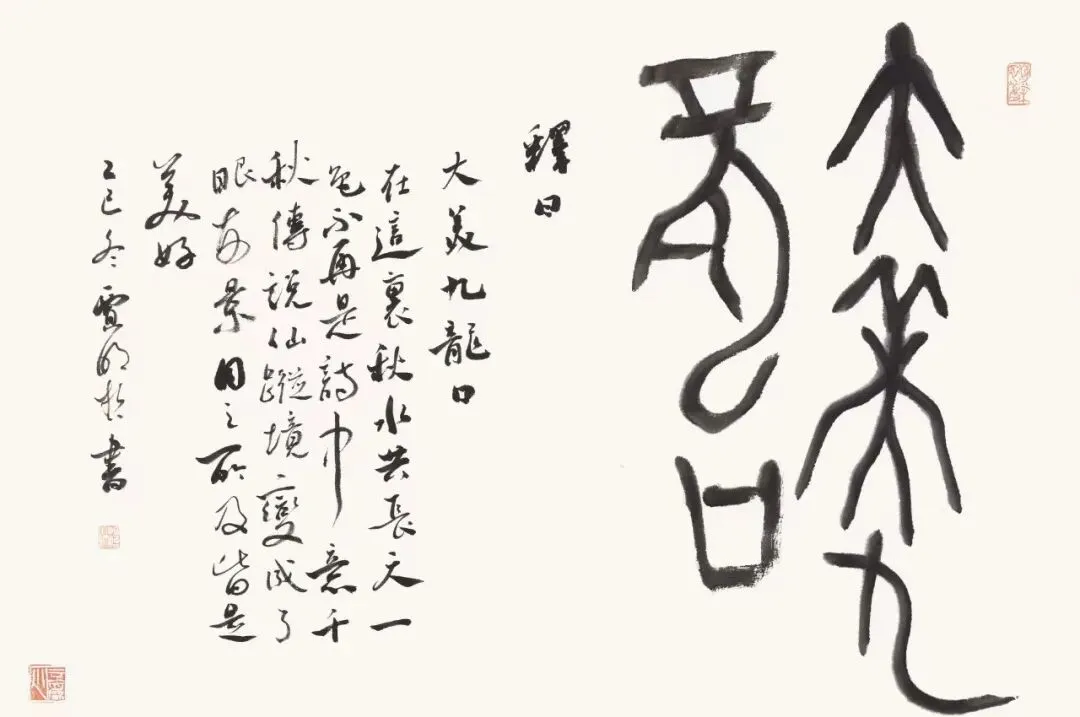 大美九
龍口
釋曰
大美九龍口
在這裏秋水共長天一
色不再是詩中意千
秋傳說仙蹤境變成了
眼前景目之所及皆是
美好
乙巳冬書